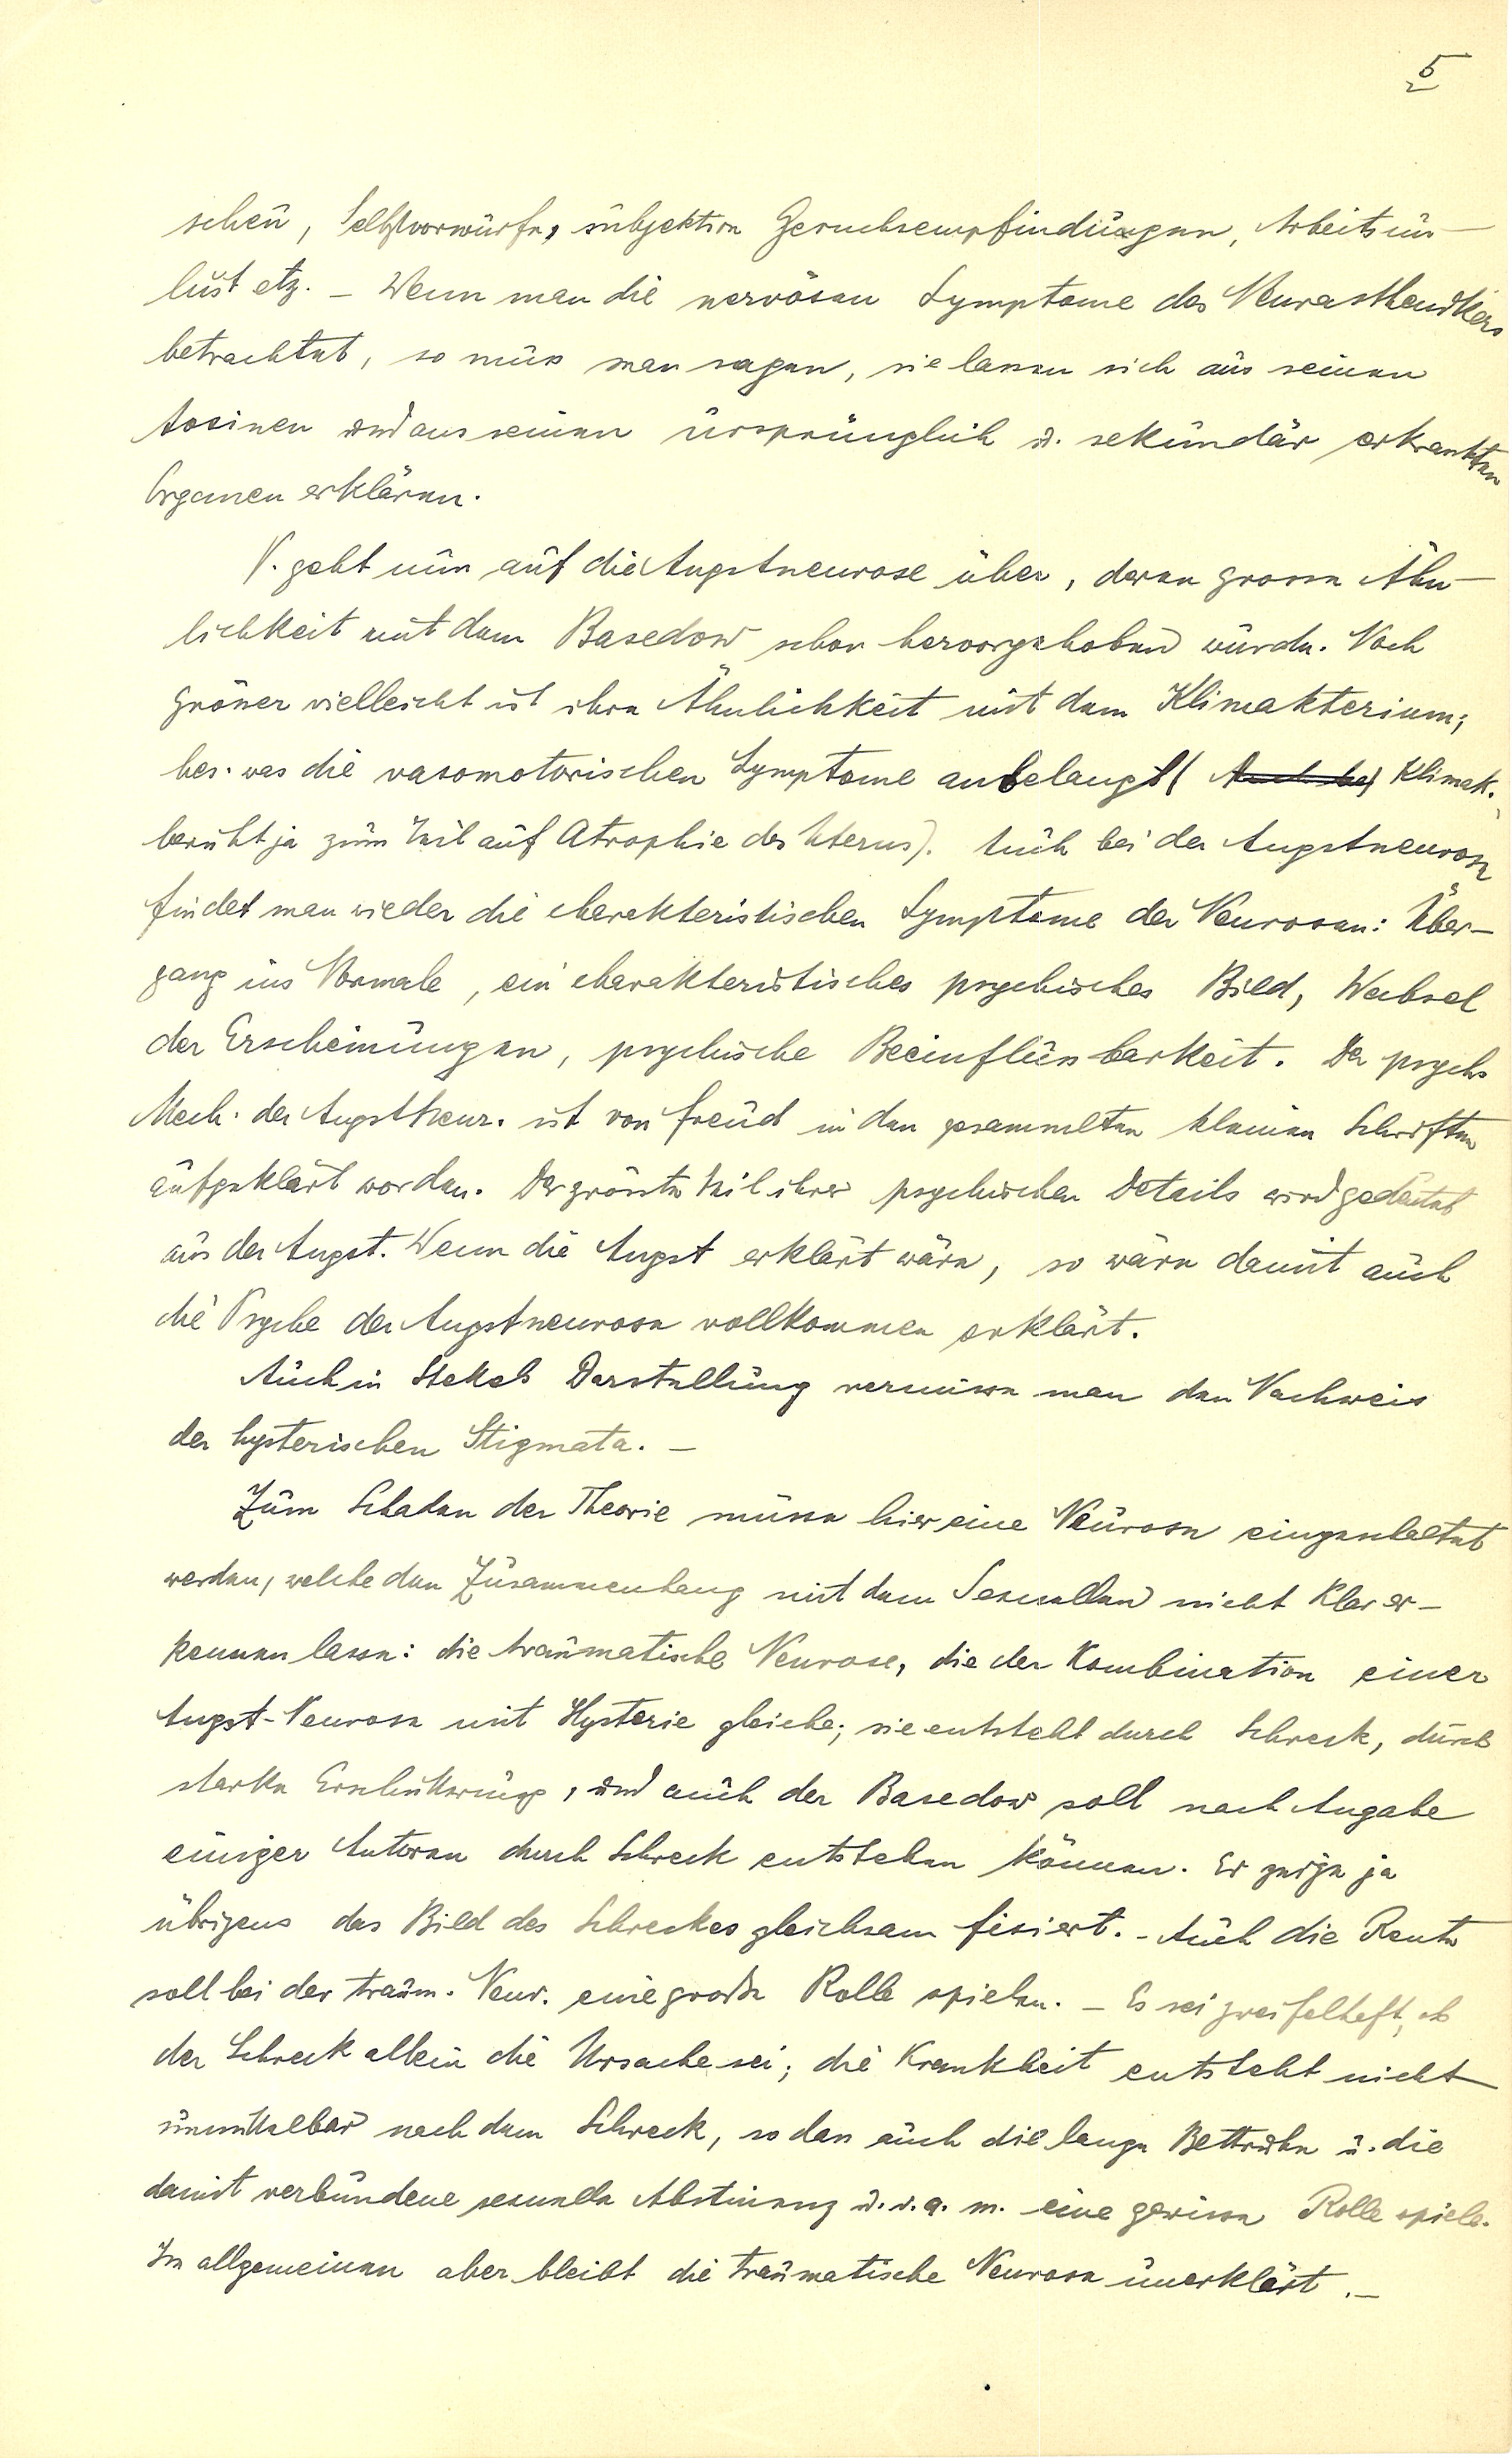 5
scheu, Selbstvorwürfe, subjektive Geruchsempfindungen, Arbeitsun-
lust etz. – Wenn man die nervösen Symptome des Neurasthenikers
betrachtet, so muss man sagen, sie lassen sich aus seinen
toxinen und aus seinen ursprünglich u. sekundär erkrankten
Organen erklären.
V. geht nun auf die Angstneurose über, deren grosse Ähn-
lichkeit mit dem Basedow schon hervorgehoben wurde. Noch
grösser vielleicht ist ihre Ähnlichkeit mit dem Klimakterium;
bes. was die vasomotorischen Symptome anbelangt ( Klimak.
beruht ja zum Teil auf Atrophie des Uterus). Auch bei der Angstneurose
findet man wieder die charakteristischen Symptome der Neurosen: Über-
gang ins Normale, ein charakteristisches psychisches Bild, Wechsel
der Erscheinungen, psychische Beeinflussbarkeit. Der psych.
Mech. der Angstneur. ist von Freud in den gesammelten kleinen Schriften
aufgeklärt worden. Der grösste Teil ihrer psychischen Details wird gedeutet
aus der Angst. Wenn die Angst erklärt wäre, so wäre damit auch
die Psyche der Angstneurose vollkommen erklärt.
Auch in Stekels Darstellung vermisse man den Nachweis
der hysterischen Stigmata. –
Zum Schaden der Theorie müsse hier eine Neurose eingeschaltet
werden, welche den Zusammenhang mit dem Sexuellen nicht klar er-
kennen lasse: die traumatische Neurose, die der Kombination einer
Angst-Neurose mit Hysterie gleiche; sie entsteht durch Schreck, durch
starke Erschütterung, und auch der Basedow soll nach Angabe
einiger Autoren durch Schreck entstehen können. Er zeige ja
übrigens das Bild des Schreckes gleichsam fixiert. – Auch die Rente
soll bei der traum. Neur. eine große Rolle spielen. – Es sei zweifelhaft, ob
der Schreck allein die Ursache sei; die Krankheit entsteht nicht
unmittelbar nach dem Schreck, so dass auch die lange Bettruhe u. die
damit verbundene sexuelle Abstinenz u. s. a. m. eine gewisse Rolle spiele.
Im allgemeinen aber bleibt die traumatische Neurose unerklärt. –